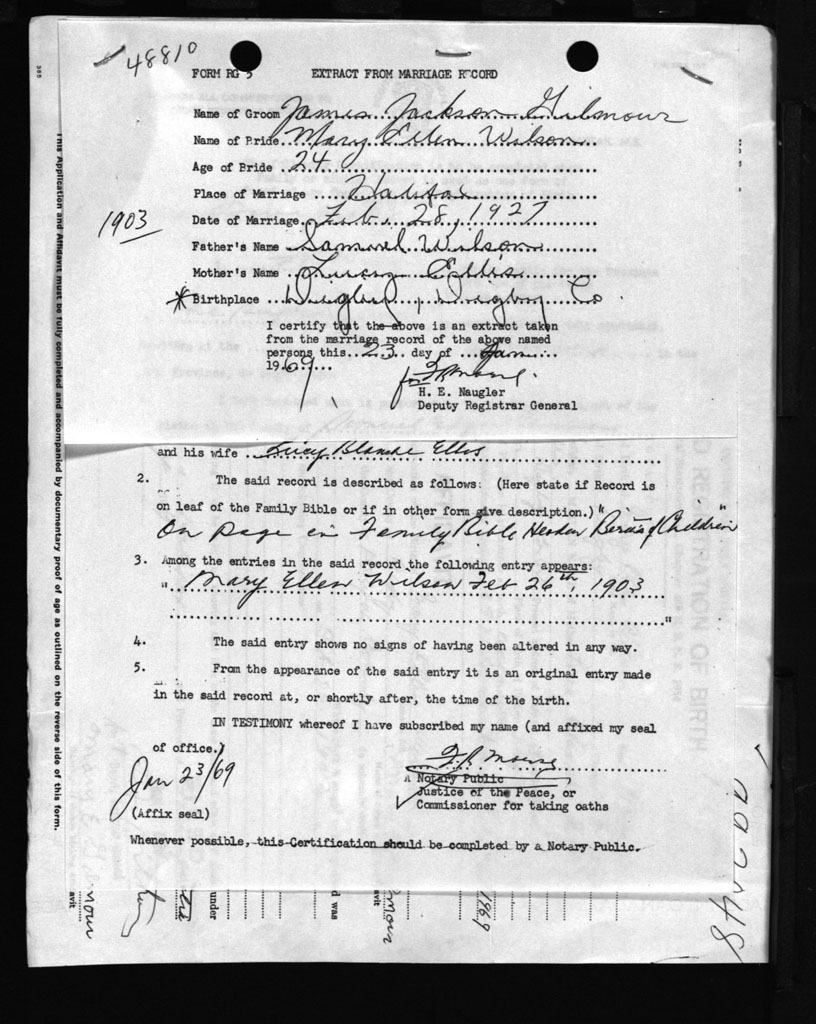 48810
FORM RG 5 EXTRACT FROM MARRIAGE RECORD
Name of Groom James Jackson Gilmour
Name of Bride Mary Ellen Wilson
Age of Bride 24
Place of Marriage Halifax
1903
Date of Marriage Feb. 28, 1927
Father's Name Samuel Wilson
Mother's Name Lucy Ellis
*Birthplace Digby, Digby Co
I certify that the above is an extract taken
from the marriage record of the above named
persons this 23 day of Jan
1969
for
H. E. Naugler
Deputy Registrar General
and his wife Lucy Blanche Ellis
2. The said record is described as follows: (Here state if Record is
on leaf of the Family Bible or if in other form give description.)"
On page in Family Bible Header "Births of Children"
3. Among the entries in the said record the following entry appears:
" Mary Ellen Wilson Feb 26th, 1903
"
4. The said entry shows no signs of having been altered in any way.
5. From the appearance of the said entry it is an original entry made
in the said record at, or shortly after, the time of the birth.
IN TESTIMONY whereof I have subscribed my name (and affixed my seal
of office.)
Jan 23/69
A Notary Public
Justice of the Peace, or
Commissioner for taking oaths
(Affix seal)
Whenever possible, this Certification should be completed by a Notary Public.
This Application and Affidavit must be fully completed and accompanied by documentary proof of age as outlined on the reverse side of this form.
under
d was
avit
1969
mour
avit